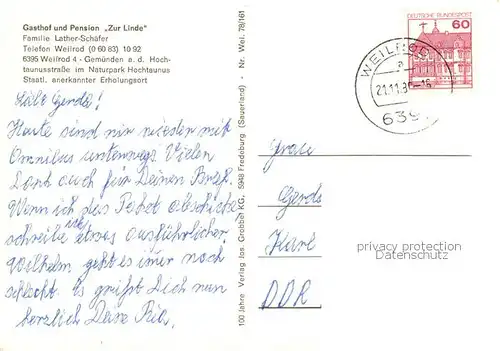 Gasthof und Pension „Zur Linde"
Familie Lather-Schäfer
Telefon Weilrod (0 60 83) 10 92
6395 Weilrod 4 - Gemünden a. d. Hoch-
taunusstraße im Naturpark Hochtaunus
Staatl. anerkannter Erholungsort
Liebe Gerda!
Heute sind wir wieder mit
Omnibus unterwegs Vielen
Dank auch für Deinen Brief.
Wenn ich das Paket abschicke
schreibe ich etwas ausführlicher.
Wilhelm geht es immer noch
schlecht. Es grüßt Dich nun
herzlich Deine Ria.
100 Jahre Verlag Jos. Grobbel KG, 5948 Fredeburg (Sauerland) - Nr. Wei. 78/161
DEUTSCHE BUNDESPOST
60
WEILROD
a
21.11.8
-16
639
Frau
Gerda
Karl
DDR
privacy protection
Datenschutz